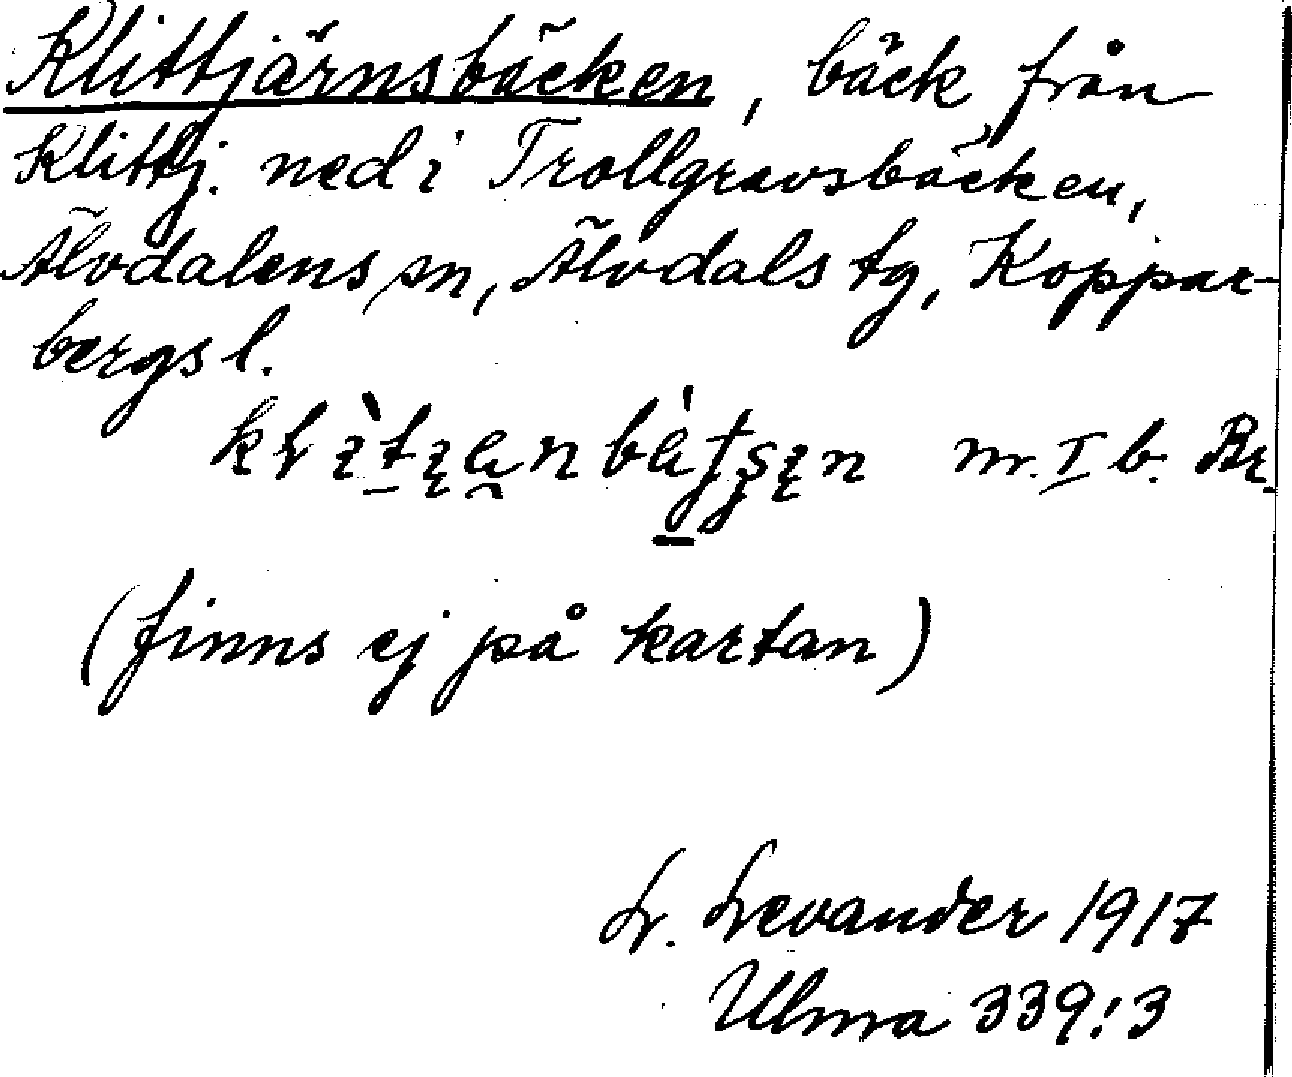 Klittjärnsbäcken, bäck från
Klittj. ned i Trollgravsbäcken,
Älvdalens sn, Älvdals tg, Koppar-
bergs l.
m. I b.
(finns ej på kartan)
L. Levander 1917
Ulma 339:3